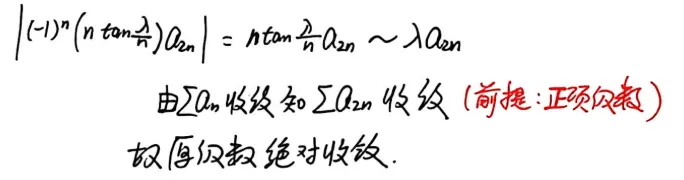 |(-1)^n (n tan λ/n) a_{2n}| = n tan λ/n a_{2n} ~ λ a_{2n}
由∑a_n 收敛 知 ∑a_{2n} 收敛 (前提:正项级数)
故原级数绝对收敛.